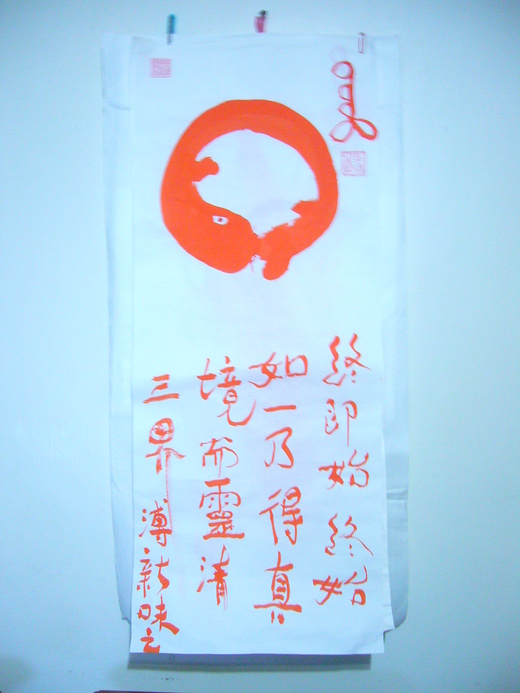 終即始終始
如一乃得真
境而靈清
三界溥新味之